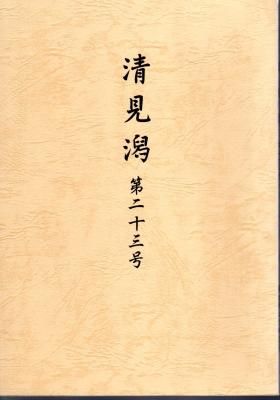 清見潟第二十三号